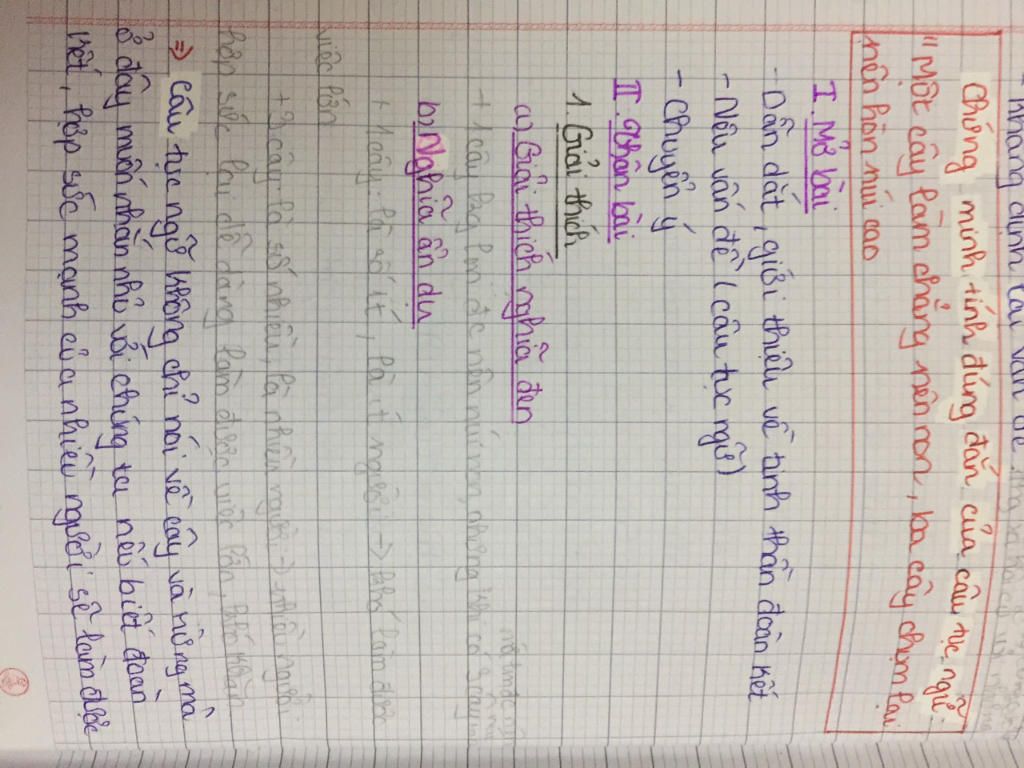 - Khẳng định lại vấn đề
Chứng minh tính đúng đắn của câu tục ngữ:
"Một cây làm chẳng nên non, ba cây chụm lại
nên hòn núi cao
I. Mở bài
- Dẫn dắt, giới thiệu về tinh thần đoàn kết
- Nêu vấn đề (câu tục ngữ)
- Chuyển ý
II. Thân bài
1. Giải thích
a) Giải thích nghĩa đen
+ 1 cây ko làm đc nên núi non, nhưng khi có 3 cây
b) Nghĩa ẩn dụ
+ 1 cây: là số ít, là ít người -> khó làm đc
việc lớn
+ 3 cây: là số nhiều, là nhiều người -> nhiều người
hợp sức lại dễ dàng làm được việc lớn, khó khăn
=> Câu tục ngữ không chỉ nói về cây và rừng mà
ở đây muốn nhắn nhủ với chúng ta nếu biết đoàn
kết, hợp sức mạnh của nhiều người sẽ làm được